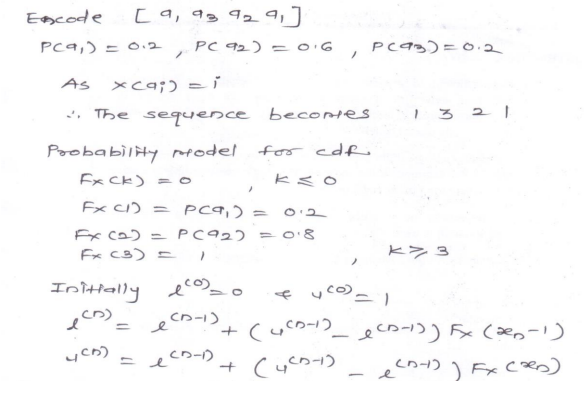 Encode [a₁ a₃ a₂ a₁]
P(a₁) = 0.2 , P(a₂) = 0.6 , P(a₃) = 0.2
As x(aᵢ) = i
∴ The sequence becomes 1 3 2 1
Probability model for cdf.
Fx(k) = 0 , k ≤ 0
Fx(1) = P(a₁) = 0.2
Fx(2) = P(a₂) = 0.8
Fx(3) = 1 , k ≥ 3
Initially l⁽⁰⁾ = 0 & u⁽⁰⁾ = 1
l⁽ⁿ⁾ = l⁽ⁿ⁻¹⁾ + (u⁽ⁿ⁻¹⁾ - l⁽ⁿ⁻¹⁾) Fx (xₙ-1)
u⁽ⁿ⁾ = l⁽ⁿ⁻¹⁾ + (u⁽ⁿ⁻¹⁾ - l⁽ⁿ⁻¹⁾) Fx (xₙ)